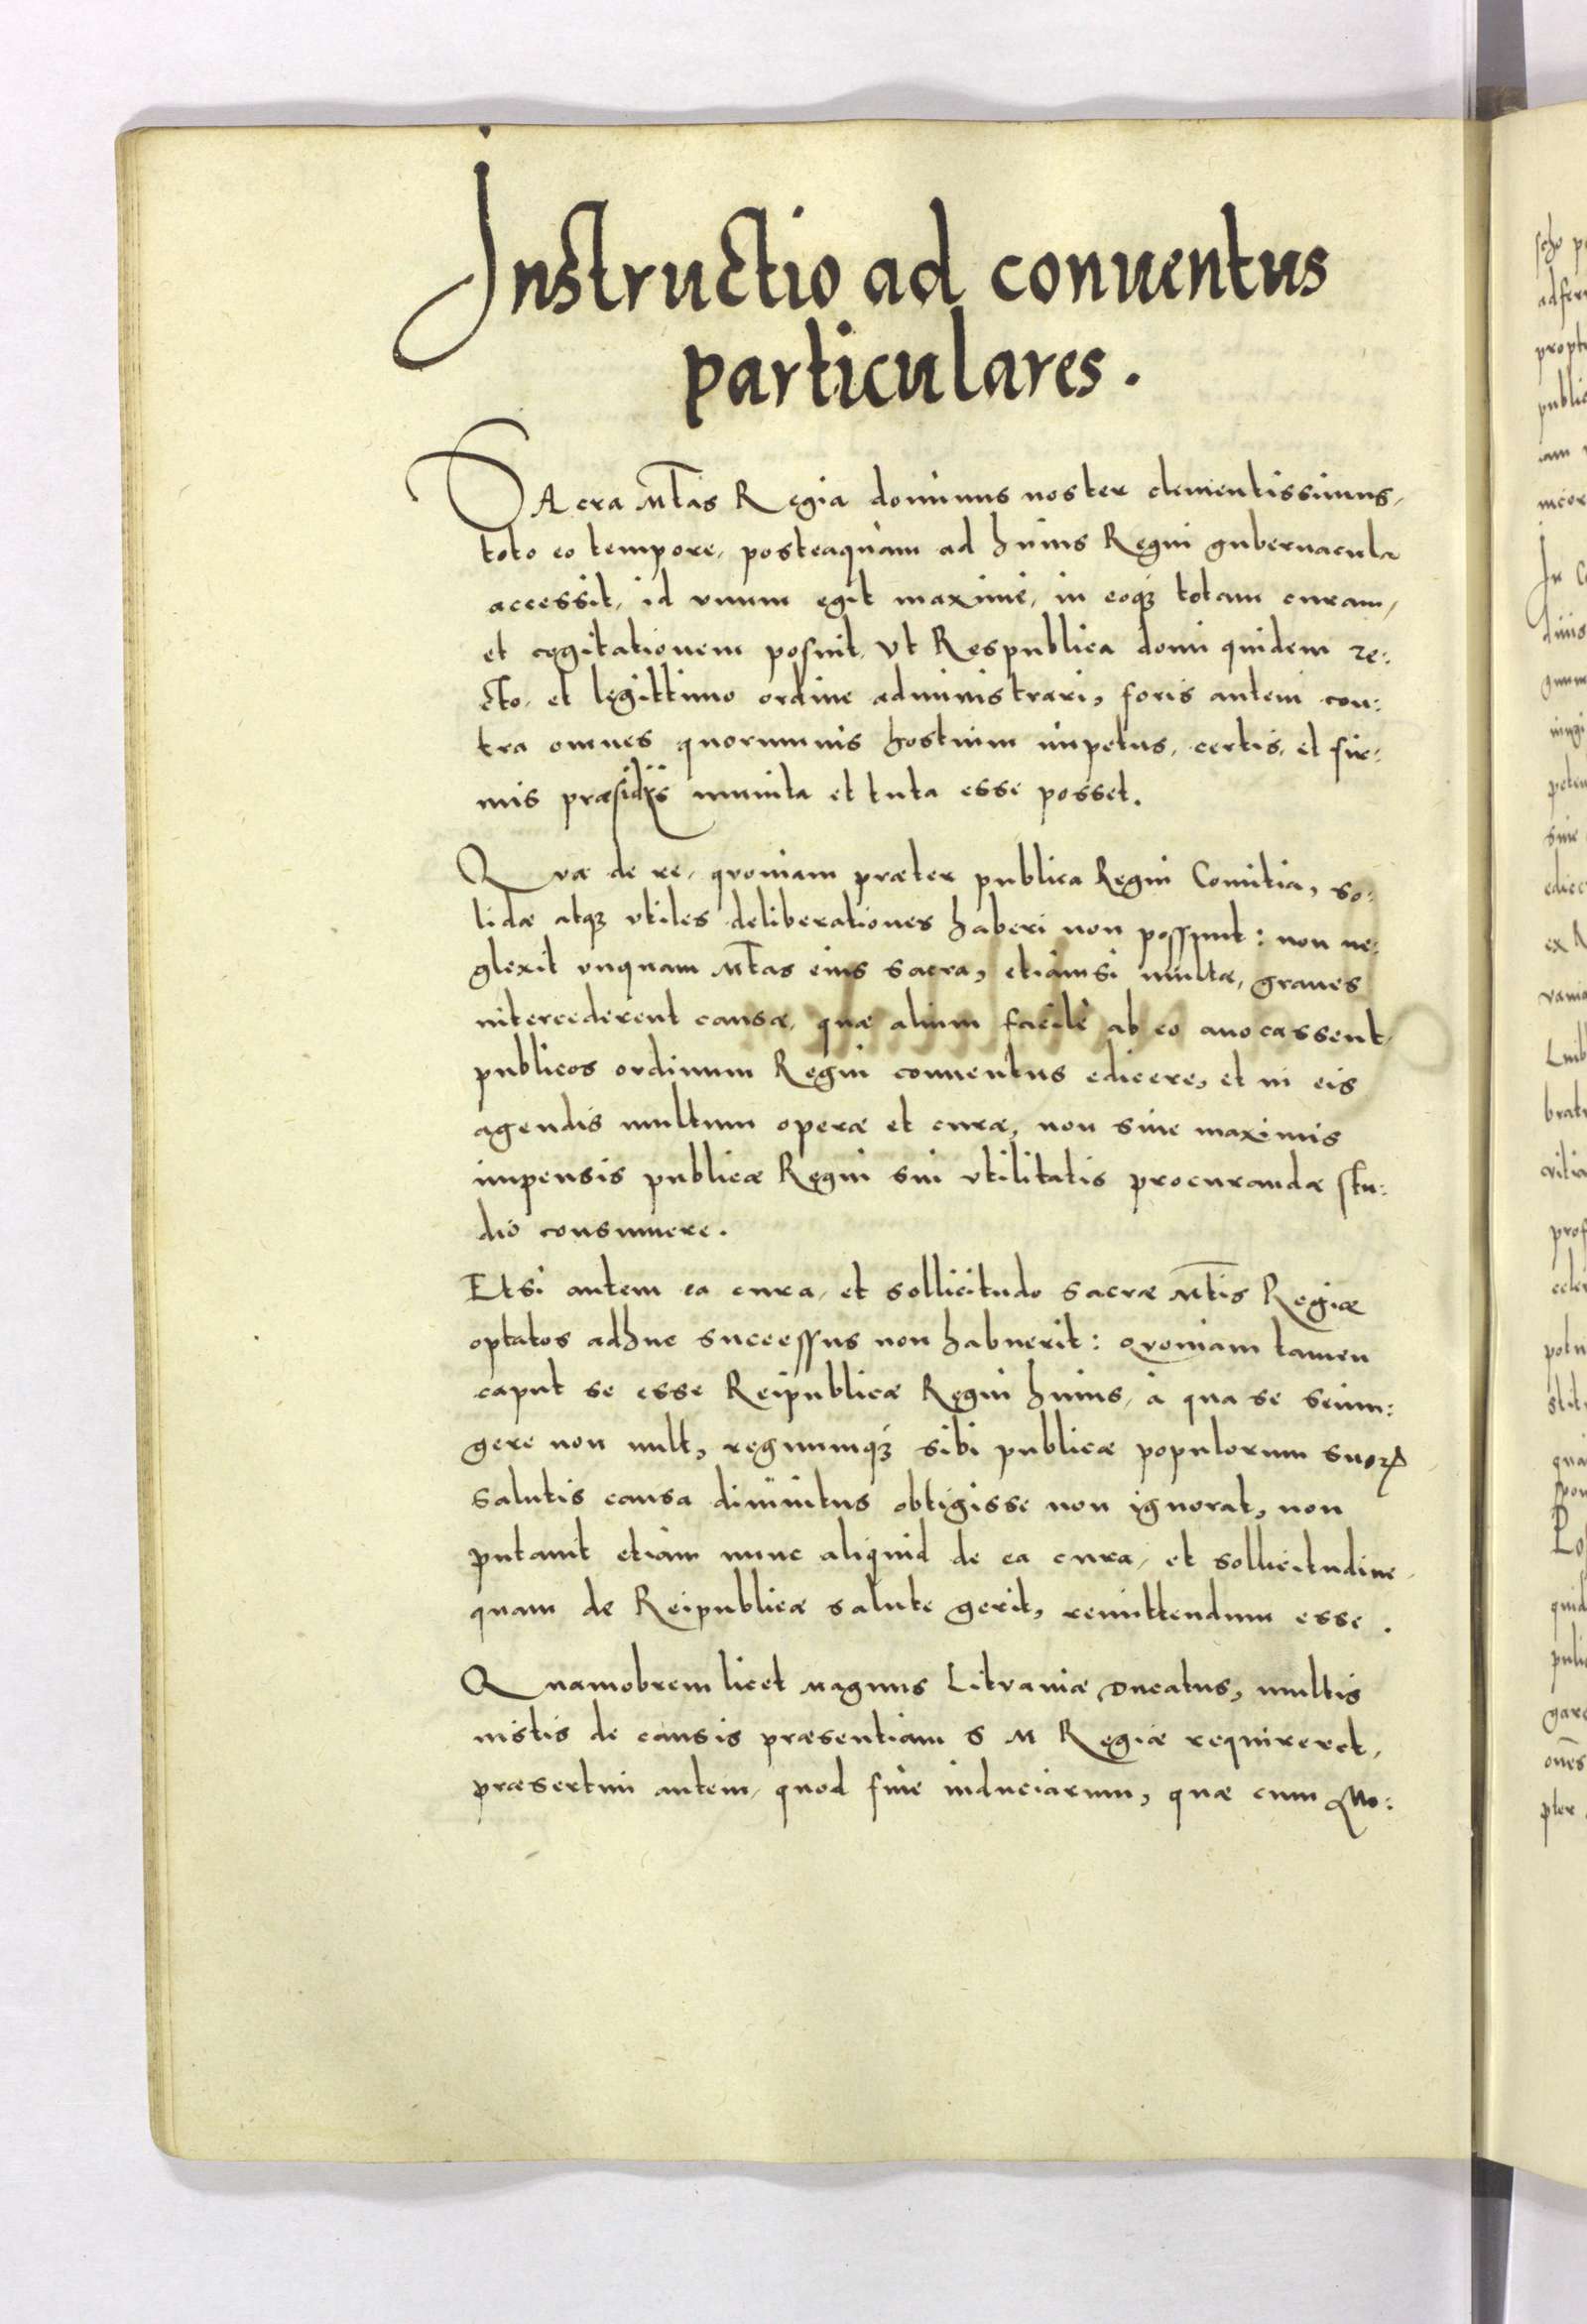 Instructio ad conuentus
particulares.
SAcra Mtas Regia dominus noster clementissimus,
toto eo tempore, posteaquam ad huius Regni gubernacula
accessit, id vnum egit maxime, in eoq; totam curam,
et cogitationem posuit, vt Respublica domi quidem re:
cto, et legittimo ordine administrari, foris autem con:
tra omnes quorumuis hostium impetus, certis, et fir:
mis præsidijs munita et tuta esse posset.
Qvæ de re, qvoniam præter publica Regni Comitia, so:
lidæ atq; vtiles deliberationes haberi non possunt: non ne:
glexit vnquam Mtas eius sacra, etiamsi multæ, graues
intercederent causæ, quæ alium facile ab eo auocassent,
publicos ordinum Regni conuentus edicere, et in eis
agendis multum operæ et curæ, non sine maximis
impensis publicæ Regni sui vtilitatis procurandæ stu:
dio consumere.
Etsi autem ea cura, et sollicitudo sacræ Mtis Regiæ
optatos adhuc successus non habuerit: qvoniam tamen
caput se esse Reipublicæ Regni huius, à qua se seiun:
gere non uult, regnumq; sibi publicæ populorum suorꝝ
salutis causa diuinitus obtigisse non ignorat, non
putauit etiam nunc aliquid de ea cura, et sollicitudine,
quam de Reipublicæ salute gerit, remittendum esse.
Quamobrem licet magnus Litvaniæ Ducatus, multis
iustis de causis præsentiam S M Regiæ requireret,
præsertim autem, quod fine induciarum, quæ cum Mo: